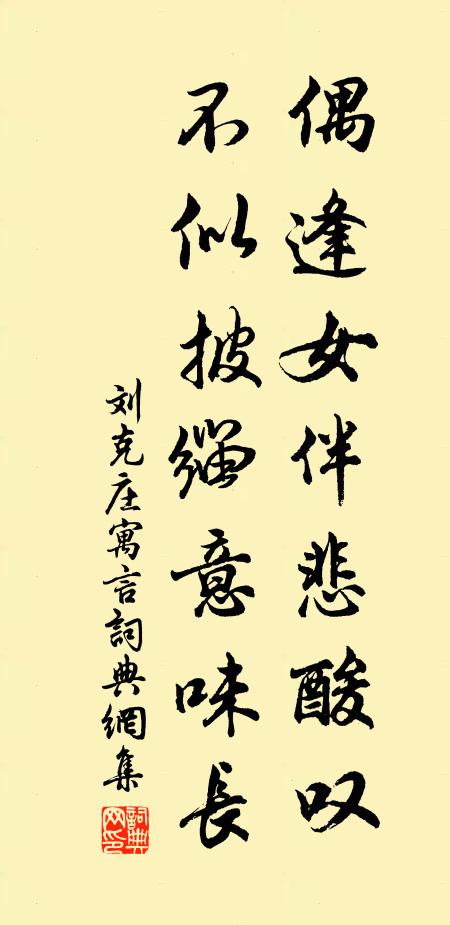 偶逢女伴悲酸叹
不似披缁意味長
刘克庄寓言詞典網集
詞典网印